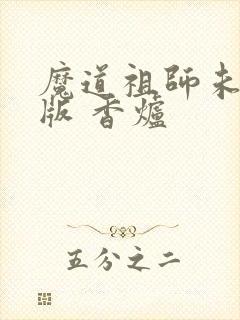 魔道祖師未
版 香爐
五分之二